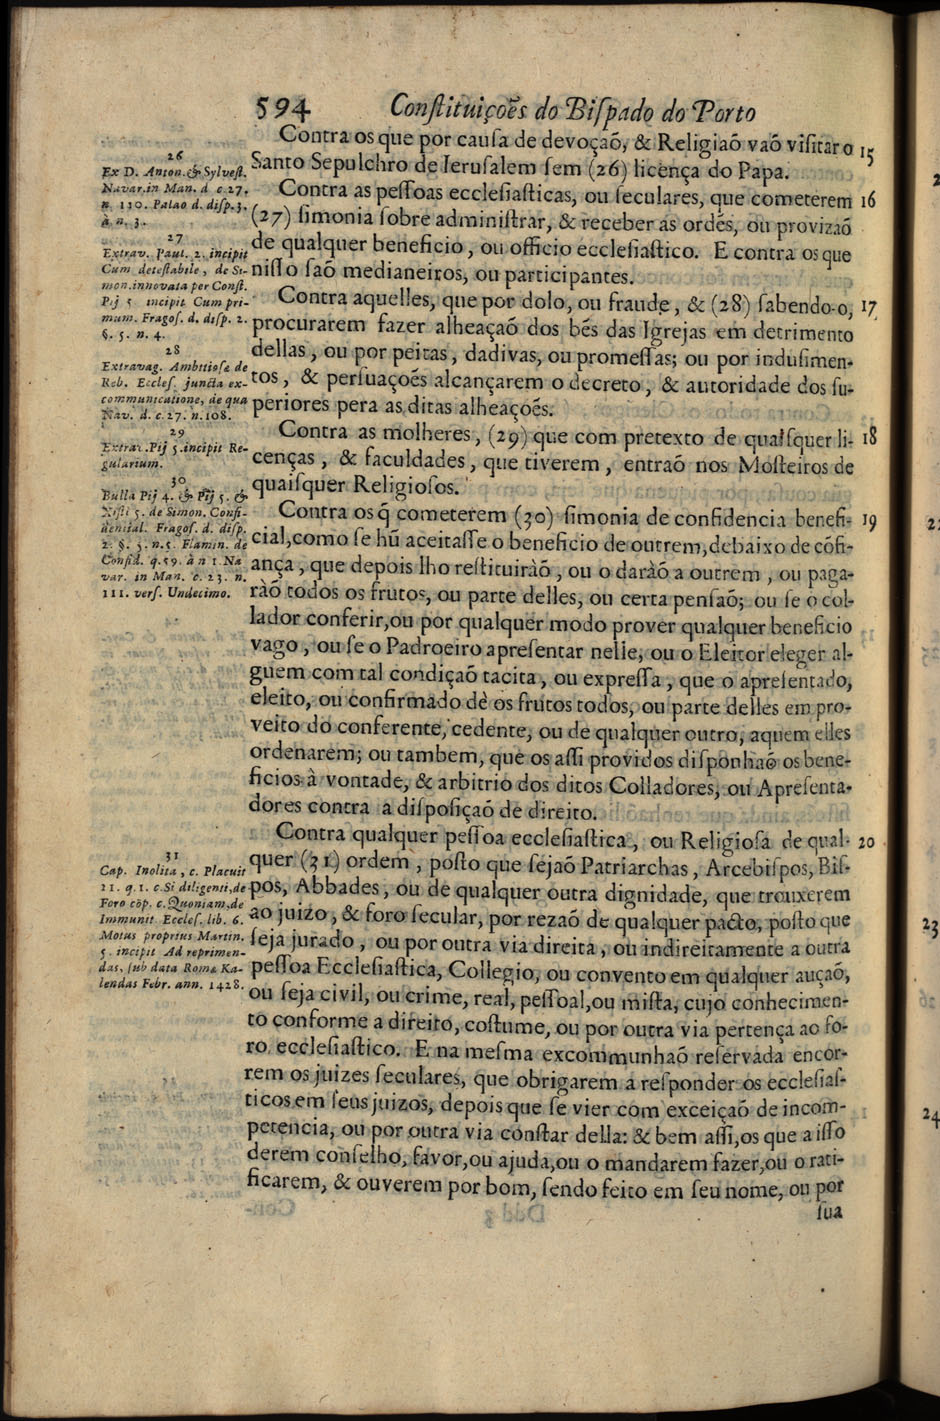 594 Conſtituiçoẽs do Biſpado do Porto
Contra os que por cauſa de devoçaõ, & Religiaõ vaõ viſitar o 15
Santo Sepulchro de Ieruſalem ſem (26) licença do Papa.
Contra as peſſoas eccleſiaſticas, ou ſeculares, que cometerem 16
(27) ſimonia ſobre adminiſtrar, & receber as ordẽs, ou provizaõ
de qualquer beneficio, ou officio eccleſiaſtico. E contra os que
niſſo ſaõ medianeiros, ou participantes.
Contra aquelles, que por dolo, ou fraude, & (28) ſabendo-o, 17
procurarem fazer alheaçaõ dos bẽs das Igrejas em detrimento
dellas, ou por peitas, dadivas, ou promeſſas; ou por induſimen-
tos, & perſuaçoẽs alcançarem o decreto, & autoridade dos ſu-
periores pera as ditas alheaçoẽs.
Contra as molheres, (29) que com pretexto de quaiſquer li- 18
cenças, & faculdades, que tiverem, entraõ nos Moſteiros de
quaiſquer Religioſos.
Contra os q̃ cometerem (30) ſimonia de confidencia benefi- 19
cial, como ſe hũ aceitaſſe o beneficio de outrem, debaixo de cõfi-
ança, que depois lho reſtituiràõ, ou o daràõ a outrem, ou paga-
ràõ todos os frutos, ou parte delles, ou certa penſaõ; ou ſe o col-
lador conferir, ou por qualquer modo prover qualquer beneficio
vago, ou ſe o Padroeiro apreſentar nelle, ou o Eleitor eleger al-
guem com tal condiçaõ tacita, ou expreſſa, que o apreſentado,
eleito, ou confirmado dè os frutos todos, ou parte delles em pro-
veito do conferente, cedente, ou de qualquer outro, aquem elles
ordenarem; ou tambem, que os aſſi providos diſponhaõ os bene-
ficios à vontade, & arbitrio dos ditos Colladores, ou Apreſenta-
dores contra a diſpoſiçaõ de direito.
Contra qualquer peſſoa eccleſiaſtica, ou Religioſa de qual- 20
quer (31) ordem, poſto que ſejaõ Patriarchas, Arcebiſpos, Biſ-
pos, Abbades, ou de qualquer outra dignidade, que trouxerem
ao juizo, & foro ſecular, por rezaõ de qualquer pacto, poſto que
ſeja jurado, ou por outra via direita, ou indireitamente a outra
peſſoa Eccleſiaſtica, Collegio, ou convento em qualquer auçaõ,
ou ſeja civil, ou crime, real, peſſoal, ou miſta, cujo conhecimen-
to conforme a direito, coſtume, ou por outra via pertença ao fo-
ro eccleſiaſtico. E na meſma excommunhaõ reſervada encor-
rem os juizes ſeculares, que obrigarem a reſponder os eccleſiaſ-
ticos em ſeus juizos, depois que ſe vier com exceiçaõ de incom-
petencia, ou por outra via conſtar della: & bem aſſi, os que a iſſo
derem conſelho, favor, ou ajuda, ou o mandarem fazer, ou o rati-
ficarem, & ouverem por bom, ſendo feito em ſeu nome, ou por
ſua
26
Ex D. Anton. & Sylveſt.
Navar. in Man. d c 27.
n. 130. Palao d. diſp. 3.
à n. 3.
27
Extrav. Paul. 2. incipit
Cum deteſtabile, de Si-
mon. innovata per Conſt.
Pij 5 incipit Cum pri-
mum. Fragoſ. d. diſp. 2.
§. 5. n. 4.
28
Extravag. Ambitioſæ de
Reb. Eccleſ. juncta ex-
communicatione, de qua
Nav. d. c. 27. n. 108.
29
Extrav. Pij 5. incipit Re-
gularium.
30
Bulla Pij 4. & Pij 5. &
Xiſti 5. de Simon. Confi-
dential. Fragoſ. d. diſp.
2. §. 3. n. 5. Flamin. de
Confid. q. 59. à n 1. Na
var. in Man. c. 23. n.
111. verſ. Undecimo.
31
Cap. Inolita, c. Placuit
21. q. 1. c. Si diligenti, de
Foro cõp. c. Quoniam, de
Immunit Eccleſ. lib. 6.
Motus proprius Martin.
5. incipit Ad reprimen-
das, ſub data Romæ Ka-
lendas Febr. ann. 1428.
23
24